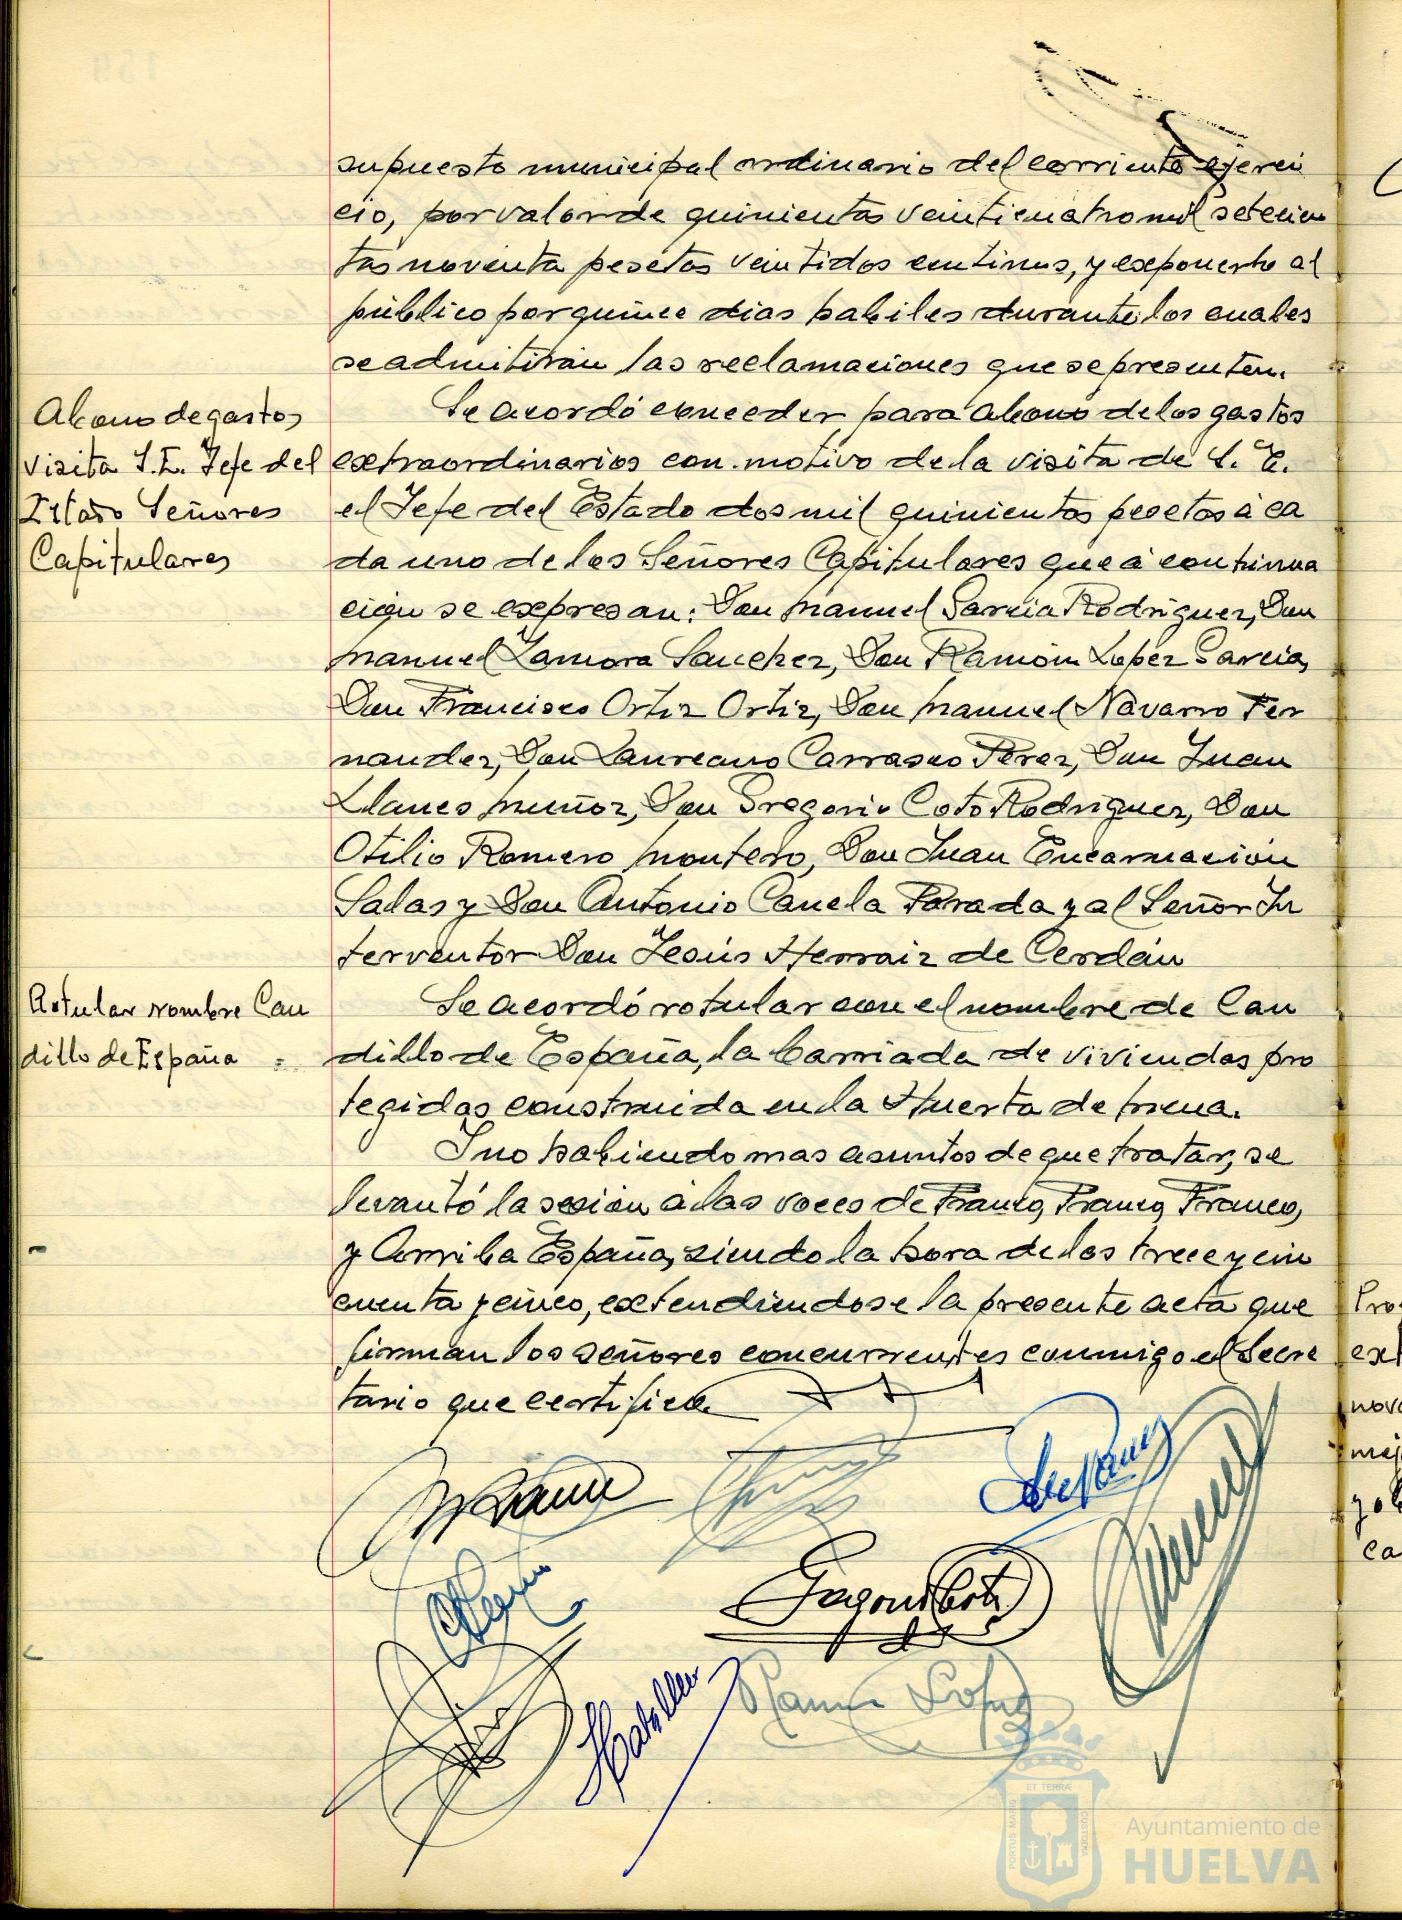 supuesto municipal ordinario del corriente ejerci
cio, por valor de quinientas veinticuatro mil setecien
tas noventa pesetas veintidos centimos, y exponerlo al
público por quince dias habiles durante los cuales
se admitirán las reclamaciones que se presenten.
Abono de gastos
visita S.E. Jefe del
Estado Señores
Capitulares
Se acordó conceder para abono de los gastos
extraordinarios con motivo de la visita de S. E.
el Jefe del Estado dos mil quinientas pesetas á ca
da uno de los Señores Capitulares que á continua
ción se expresan: Don Manuel Garcia Rodriguez, Don
Manuel Zamora Sanchez, Don Ramón Lopez Garcia,
Don Francisco Ortiz Ortiz, Don Manuel Navarro Fer
nandez, Don Laureano Carrasco Perez, Don Juan
Llanes Muñoz, Don Gregorio Coto Rodriguez, Don
Otilio Romero Montero, Don Juan Encarnación
Salas y Don Antonio Canela Parada y al Señor In
terventor Don Jesús Herraiz de Cerdán
Rotular nombre Cau
dillo de España =
Se acordó rotular con el nombre de Cau
dillo de España, la barriada de viviendas pro
tegidas construida en la Huerta de Mena.
Y no habiendo mas asuntos de que tratar, se
levantó la sesión á las voces de Franco, Franco, Franco,
y Arriba España, siendo la hora de las trece y cin
cuenta y cinco, extendiendose la presente acta que
firman los señores concurrentes conmigo el Secre
tario que certifico.
Gregorio Coto
Ramon Lopez
Pro
ext
nov
mej
y ob
ca
ET TERRÆ
PORTUS MARIS
CUSTODIA
Ayuntamiento de
HUELVA